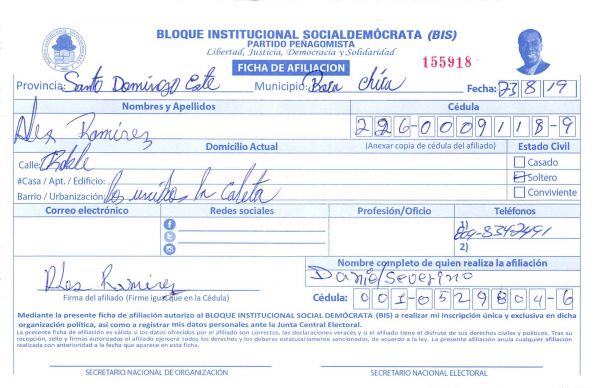 BLOQUE INSTITUCIONAL SOCIALDEMÓCRATA (BIS)
PARTIDO PEÑAGOMISTA
Libertad, Justicia, Democracia y Solidaridad
FICHA DE AFILIACION
155918
Provincia: Santo Domingo Este Municipio: Boca Chica Fecha: 23 8 19
Nombres y Apellidos Cédula
Alex Ramirez 226-0009118-9
Domicilio Actual (Anexar copia de cédula del afiliado) Estado Civil
Calle:
Casado
#Casa / Apt. / Edificio: Soltero
Barrio / Urbanización: los unidos la caleta Conviviente
Correo electrónico Redes sociales Profesión/Oficio Teléfonos
1) 809-834-2491
2)
Nombre completo de quien realiza la afiliación
Alex Ramirez Daniel Severino
Firma del afiliado (Firme igual que en la Cédula) Cédula: 001-0529804-6
Mediante la presente ficha de afiliación autorizo al BLOQUE INSTITUCIONAL SOCIAL DEMÓCRATA (BIS) a realizar mi inscripción única y exclusiva en dicha
organización política, así como a registrar mis datos personales ante la Junta Central Electoral.
La presente ficha de afiliación es válida si los datos ofrecidos por el afiliado son correctos, las declaraciones veraces y si el afiliado tiene el disfrute de sus derechos civiles y políticos. Tras su
recepción, sello y firmas autorizadas el afiliado ejercerá todos los derechos y los deberes estatutariamente sancionados, de acuerdo a la ley. La presente afiliación anula cualquier afiliación
realizada con anterioridad a la fecha que aparece en esta ficha.
SECRETARIO NACIONAL DE ORGANIZACIÓN SECRETARIO NACIONAL ELECTORAL